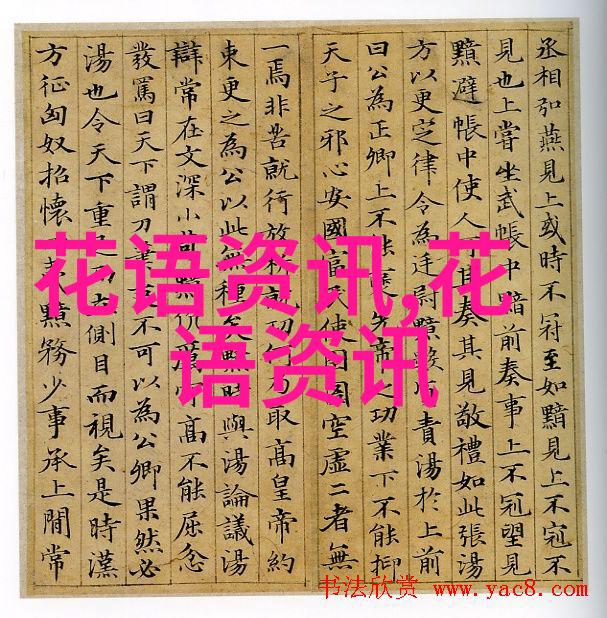 丞相弘燕見上或時不冠至如黯見上不冠不
見也上嘗坐武帳中黯前奏事上不冠望見
黯避帳中使人可其奏其見敬禮如此張湯
方以更定律令為廷尉黯數責湯於上前
曰公為正卿上不能先帝之功業下不能抑
天子之邪心安國富民使囹圄空虛二者無
一焉非苦就行放析就功何取高皇帝約
束更之為公以此無種矣黯時與湯論議湯
辯常在文深小苛黯伉厲守高不能屈忿
發罵曰天下謂刀筆吏不可以為公卿果然必
湯也令天下重足側目而視矣是時漢
方征匈奴招懷夷黯務少事承上閒常
花语资讯,花
语资讯
书法欣赏 www.yac8.com